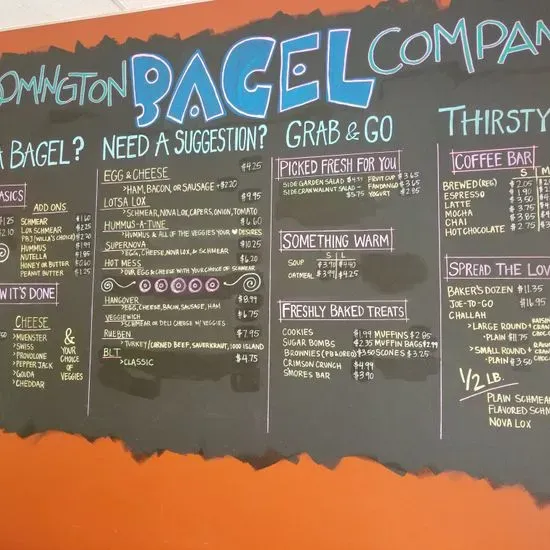 OMINGTON BAGEL COMPAN
A BAGEL?
ASICS
ADD ONS
SCHMEAR $1.60
LOX SCHMEAR $2.25
PBJ (W/ULA'S CHOICE) $2.70
HUMMUS $1.99
NUTELLA $1.85
HONEY OR BUTTER $0.60
PEANUT BUTTER $1.25
W IT'S DONE
CHEESE
>MUENSTER
>SWISS
>PROVOLONE
>PEPPER JACK
>GOUDA
>CHEDDAR
& YOUR CHOICE OF VEGGIES
NEED A SUGGESTION?
EGG & CHEESE $4.25
>HAM, BACON, OR SAUSAGE +$2.20
LOTSA LOX $9.95
>SCHMEAR, NOVA LOX, CAPERS, ONION, TOMATO
HUMMUS-A-TUNE $6.60
>HUMMUS & ALL OF THE VEGGIES YOUR ♥ DESIRES
SUPERNOVA $10.25
>EGG, CHEESE, NOVA LOX, & SCHMEAR
HOT MESS $6.20
>OUR EGG & CHEESE WITH YOUR CHOICE OF SCHMEAR
HANGOVER $8.99
>EGG, CHEESE, BACON, SAUSAGE, HAM
VEGGIEWICH $6.75
>SCHMEAR OR DELI CHEESE W/ VEGGIES
RUEBEN $7.95
>TURKEY/CORNED BEEF, SAUERKRAUT, 1000 ISLAND
BLT $4.75
>CLASSIC
GRAB & GO
PICKED FRESH FOR YOU
SIDE GARDEN SALAD $4.99 FRUIT CUP $3.65
SIDE CRAN WALNUT SALAD - $5.75 FANDANGO $3.65
YOGURT $2.85
SOMETHING WARM
S L
SOUP $3.90 $4.40
OATMEAL $3.99 $4.25
FRESHLY BAKED TREATS
COOKIES $1.99 MUFFINS $2.85
SUGAR BOMBS $2.35 MUFFIN BAGS $2.99
BROWNIES (PB & OREO) $3.50 SCONES $3.25
CRIMSON CRUNCH $4.99
SMORES BAR $3.90
THIRSTY
COFFEE BAR
S M
BREWED (REG) $2.05
ESPRESSO $1.90
LATTE $3.50
MOCHA $3.75
CHAI $3.85
HOT CHOCOLATE $2.75
SPREAD THE LOV
BAKER'S DOZEN $11.35
JOE-TO-GO $16.95
CHALLAH
>LARGE ROUND +
·PLAIN $11.75
>SMALL ROUND +
·PLAIN $3.50
1/2 LB.
PLAIN SCHMEA
FLAVORED SCHM
NOVA LOX